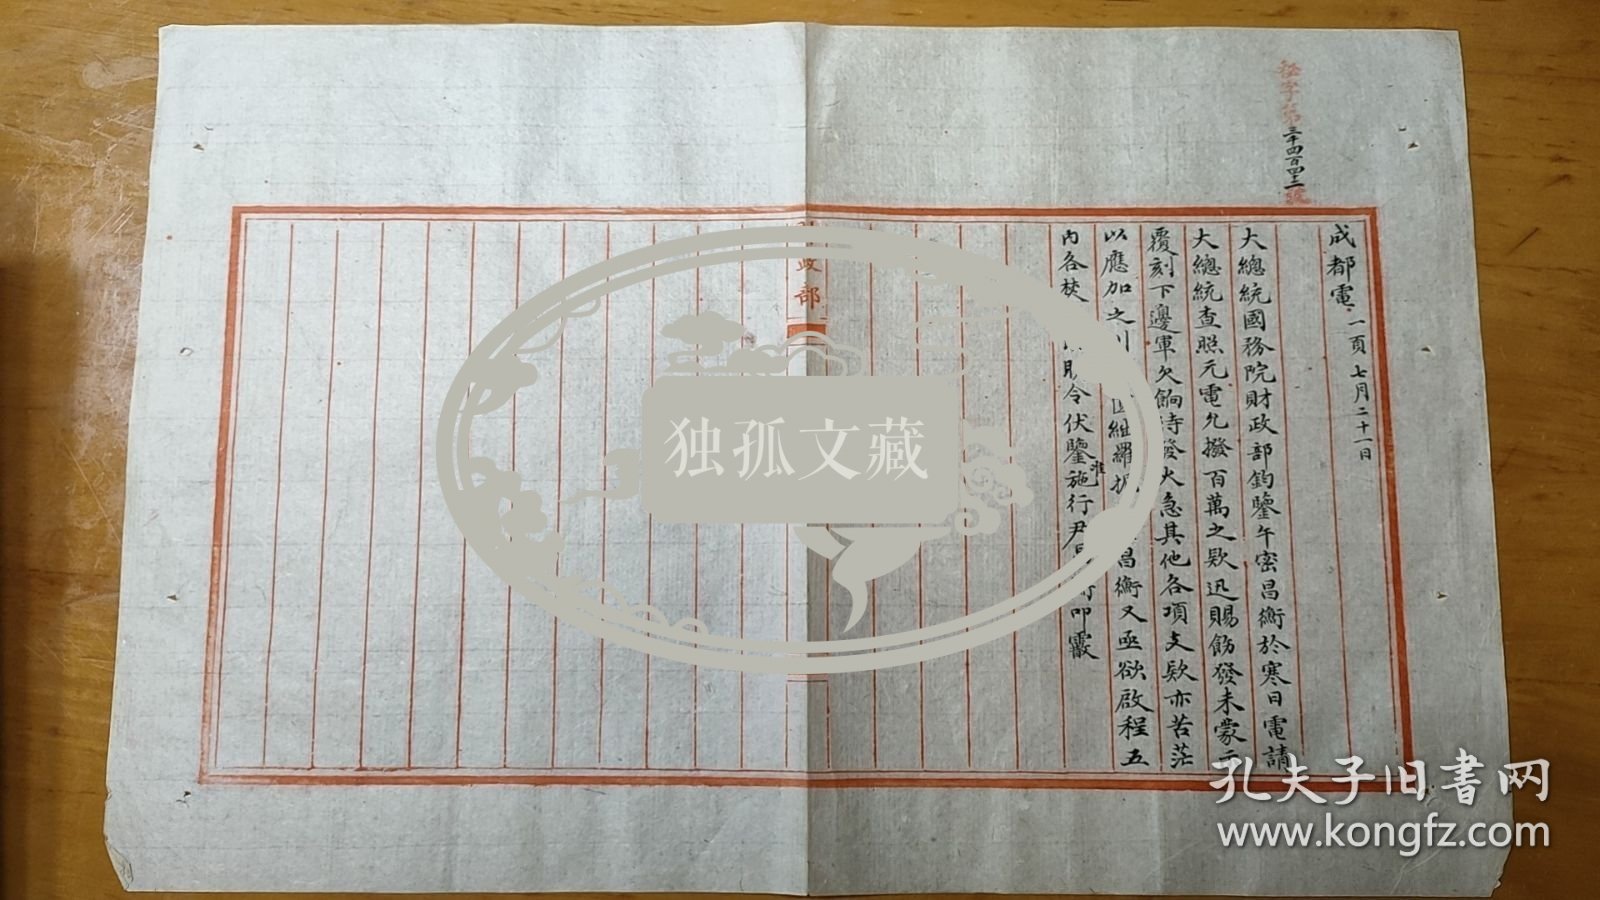 秘字第三千四百四十二號
成都電 一頁 七月二十一日
大總統國務院財政部鈞鑒午密昌衡於寒日電請
大總統查照元電允撥百萬之欵迅賜飭發未蒙示
覆刻下邊軍欠餉待發火急其他各項支欵亦苦茫
以應加之川 羅掘 昌衡又亟欲啟程五
內各焚 令伏鑒施行尹 叩霰
准
政部
独孤文藏
孔夫子旧书网
www.kongfz.com